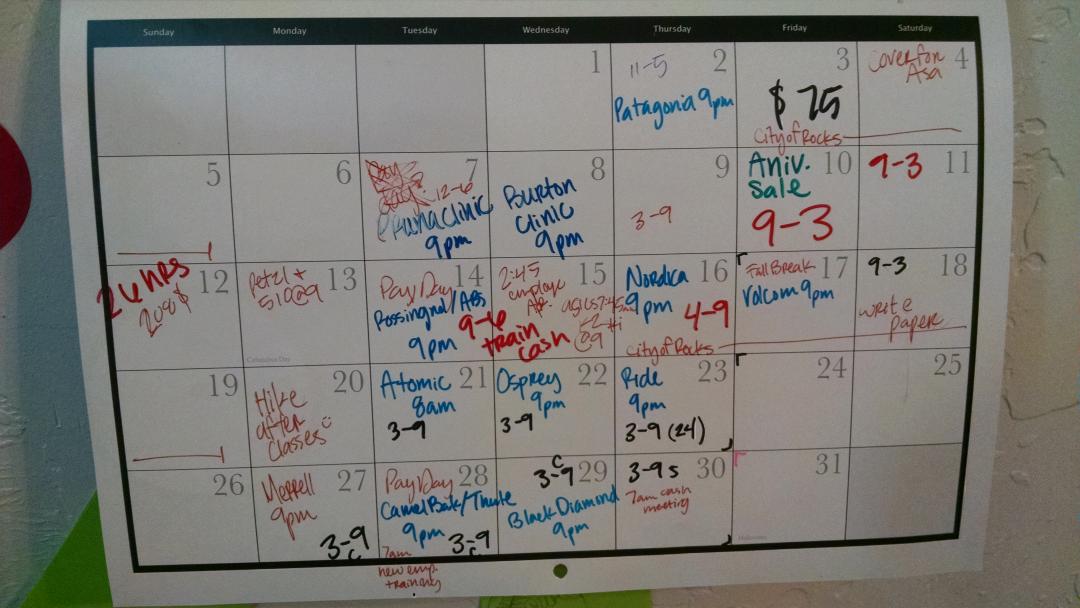 Sunday Monday Tuesday Wednesday Thursday Friday Saturday
1
11-5 2
Patagonia 9pm
3
$ 75
City of Rocks
Cover for 4
Asa
5
6
7
12-6
Prana clinic
9pm
8
Burton
Clinic
9pm
9
3-9
Aniv. 10
Sale
9-3
9-3 11
26 hrs 12
200$
Petzl + 13
510@9
Columbus Day
Pay Day 14
Rossingnal/ABS
9pm
9-6
2:45 15
employe
train
cash
@9
Nordica 16
9pm 4-9
City of Rocks
Fall Break 17
Volcom 9pm
9-3 18
write
paper
19
Hike 20
after
Classes
Atomic 21
8am
3-9
Osprey 22
9pm
3-9
Ride 23
9pm
3-9 (24)
24
25
26
Merrell 27
9pm
3-9
c
Pay Day 28
CamelBak/Thule
9pm 3-9
c
7am
new emp.
training
c
3-9 29
Black Diamond
9pm
3-9 s 30
7am cash
meeting
31
Halloween